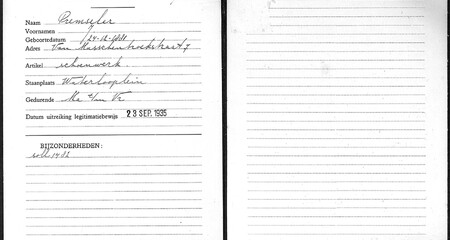 Naam Premseler
Voornamen
Geboortedatum 24-12-1881
Adres Van Musschenbroekstraat 7
Artikel schoenwerk.
Staanplaats Waterlooplein
Gedurende Ma t/m Vr
Datum uitreiking legitimatiebewijs 23 SEP. 1935
BIJZONDERHEDEN: